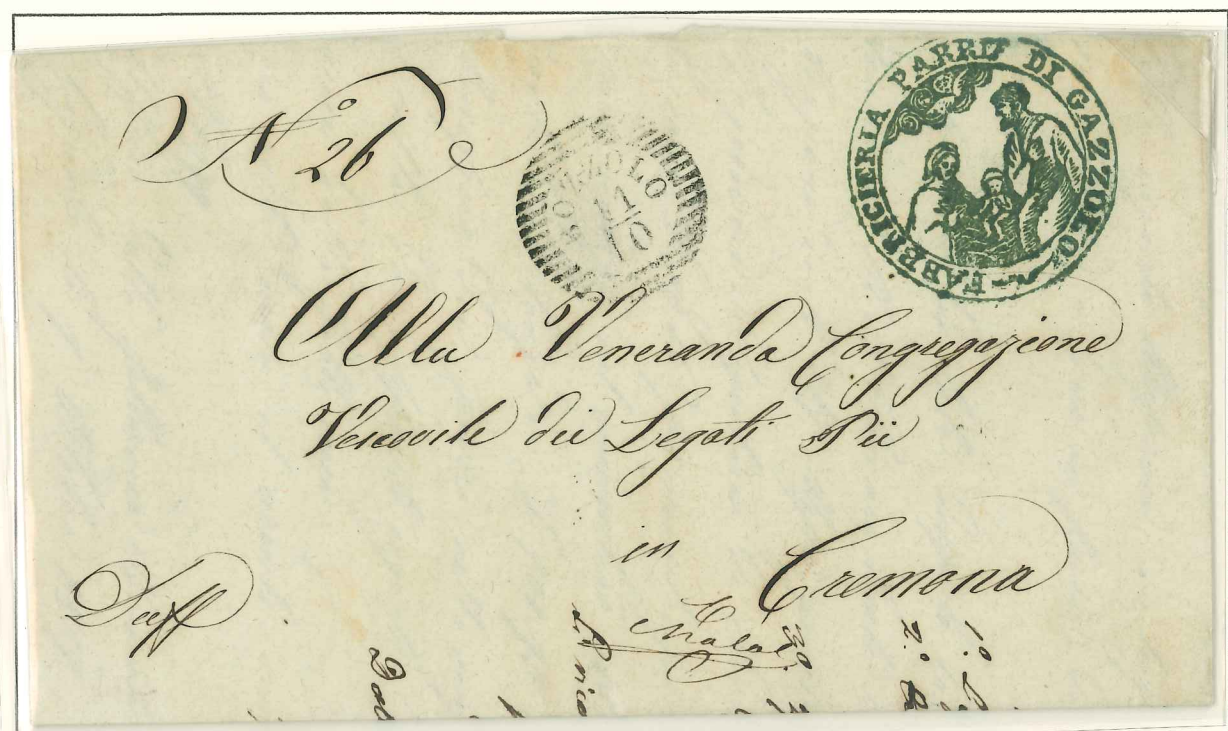 Nº 26
BOZZOLO
11
10
FABBRICIERIA PARR. DI GAZZOLO
Alla Veneranda Congregazione
Vescovile dei Legati Pii
in
Cremona
D'uff
1.º
2.º
3º